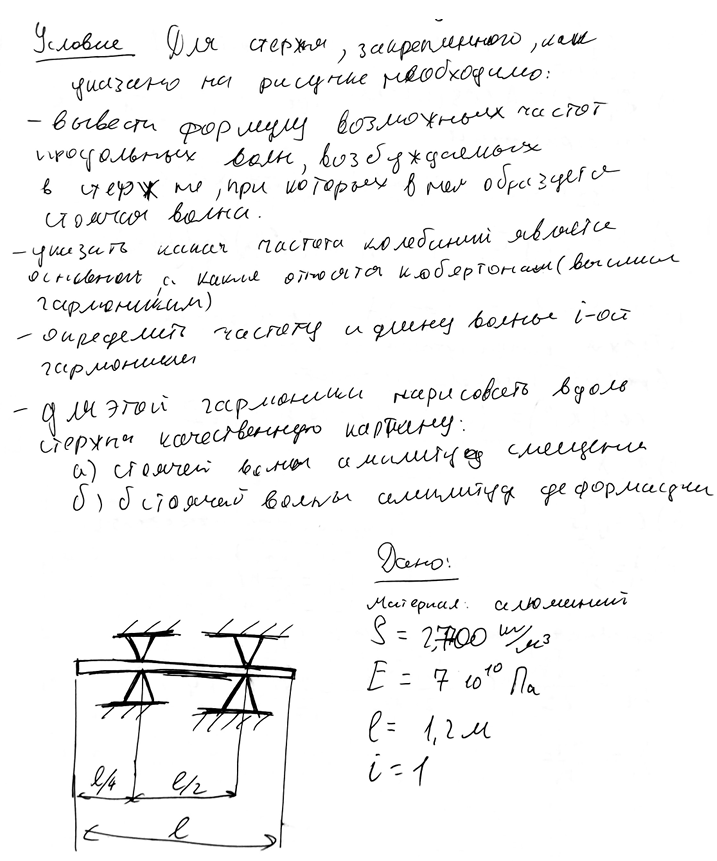 Условие Для стержня, закрепленного, как
указано на рисунке необходимо:
- вывести формулу возможных частот
продольных волн, возбуждаемых
в стержне, при которых в нем образуется
стоячая волна.
- указать какая частота колебаний является
основной, а какие относятся к обертонам (высшим
гармоникам)
- определить частоту и длину волны i-ой
гармоники
- для этой гармоники нарисовать вдоль
стержня качественную картину:
а) стоячей волны амплитуд смещения
б) стоячей волны амплитуд деформации
Дано:
Материал: алюминий
ρ = 2700 кг/м3
E = 7 10^10 Па
l = 1,2 м
i = 1
l/4 l/2
l